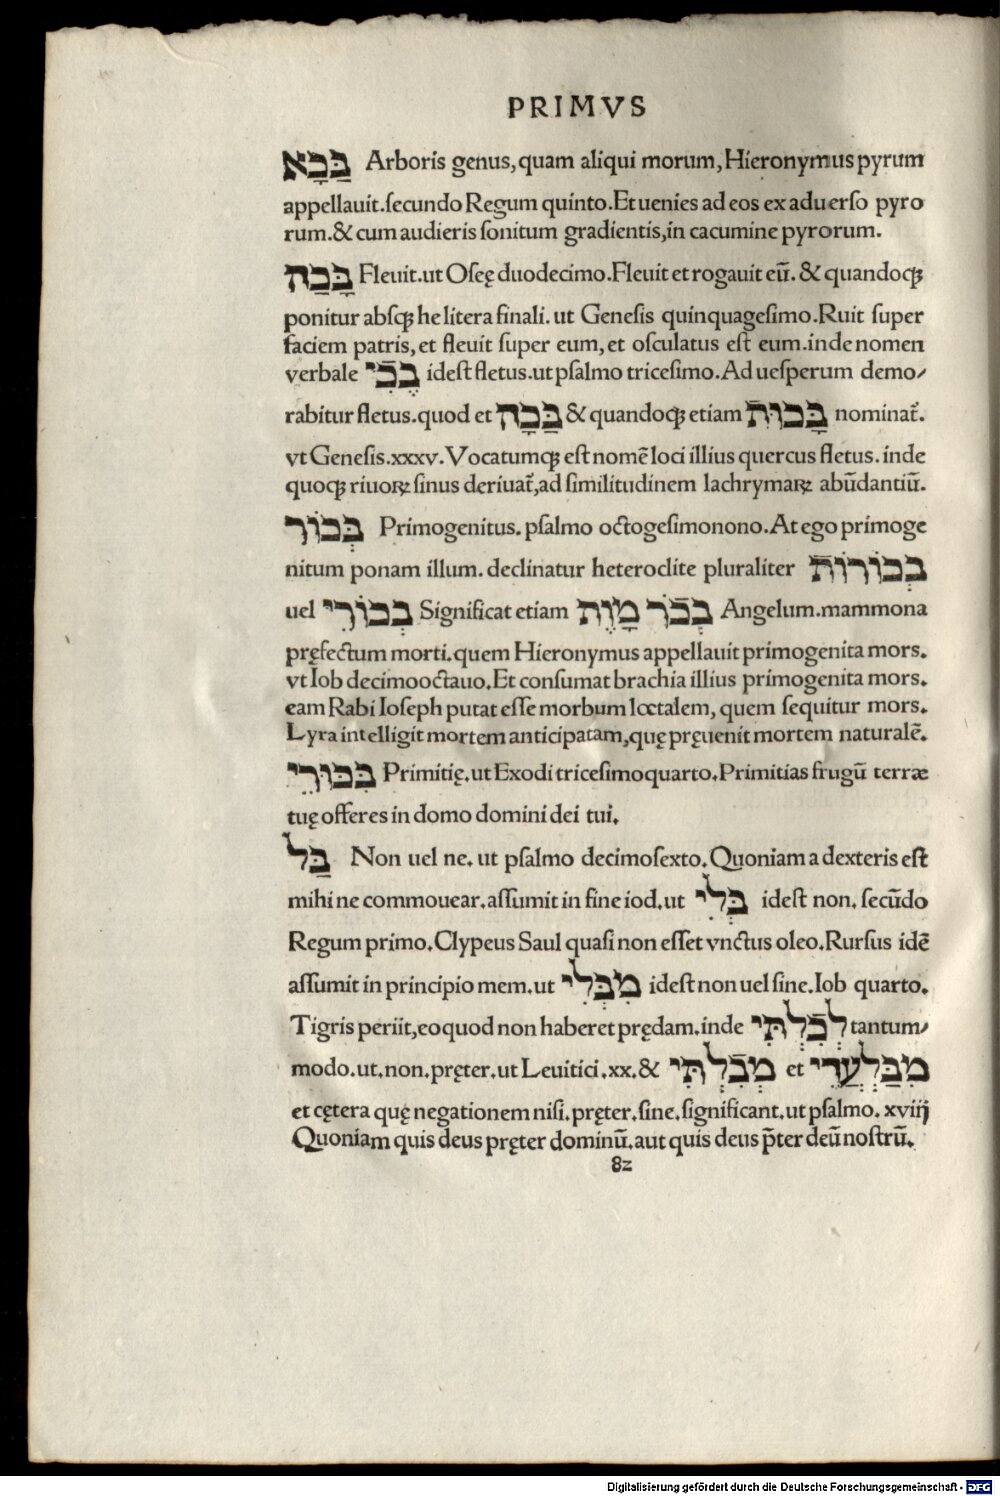 PRIMVS
בַּכָא Arboris genus, quam aliqui morum, Hieronymus pyrum
appellauit.ſecundo Regum quinto.Et uenies ad eos ex aduerſo pyro
rum.& cum audieris ſonitum gradientis,in cacumine pyrorum.
בָּכַה Fleuit.ut Oſeę duodecimo.Fleuit et rogauit eū. & quandoqꝫ
ponitur abſqꝫ he litera finali. ut Geneſis quinquageſimo.Ruit ſuper
faciem patris, et fleuit ſuper eum, et oſculatus eſt eum.inde nomen
verbale בֶּכִי idest fletus.ut pſalmo triceſimo. Ad ueſperum demo/
rabitur fletus.quod et בַּכָה & quandoqꝫ etiam בָּכוּת nominat̄.
vt Geneſis.xxxv. Vocatumqꝫ eſt nomē loci illius quercus fletus. inde
quoqꝫ riuoꝝ ſinus deriuat̄,ad ſimilitudinem lachrymaꝝ abūdantiū.
בְּכוֹר Primogenitus. pſalmo octogeſimonono. At ego primoge
nitum ponam illum. declinatur heteroclite pluraliter בְכוֹרוֹת
uel בְכוֹרֵי Significat etiam בְכֹר מָוֶת Angelum.mammona
pręfectum morti.quem Hieronymus appellauit primogenita mors.
vt Iob decimooctauo. Et conſumat brachia illius primogenita mors.
eam Rabi Ioſeph putat eſſe morbum lœtalem, quem ſequitur mors.
Lyra intelligit mortem anticipatam,quę pręuenit mortem naturalē.
בִּכּוּרֵי Primitię.ut Exodi triceſimoquarto.Primitias frugū terræ
tuę offeres in domo domini dei tui.
בַּל Non uel ne. ut pſalmo decimoſexto. Quoniam a dexteris eſt
mihi ne commouear.aſſumit in fine iod.ut בְּלִי idest non. ſecūdo
Regum primo.Clypeus Saul quaſi non eſſet vnctus oleo.Rurſus idē
aſſumit in principio mem.ut מִבְּלִי idest non uel ſine.Iob quarto.
Tigris periit,eo quod non haberet prędam.inde לְבִלְתִּי tantum/
modo.ut.non.pręter.ut Leuitici.xx.& מִבִלְתִּי et מִבַּלְעֲדֵי
et cętera quę negationem niſi.pręter.ſine.ſignificant.ut pſalmo. xviiȷ
Quoniam quis deus pręter dominū.aut quis deus p̄ter deū noſtrū.
82
Digitalisierung gefördert durch die Deutsche Forschungsgemeinschaft - DFG